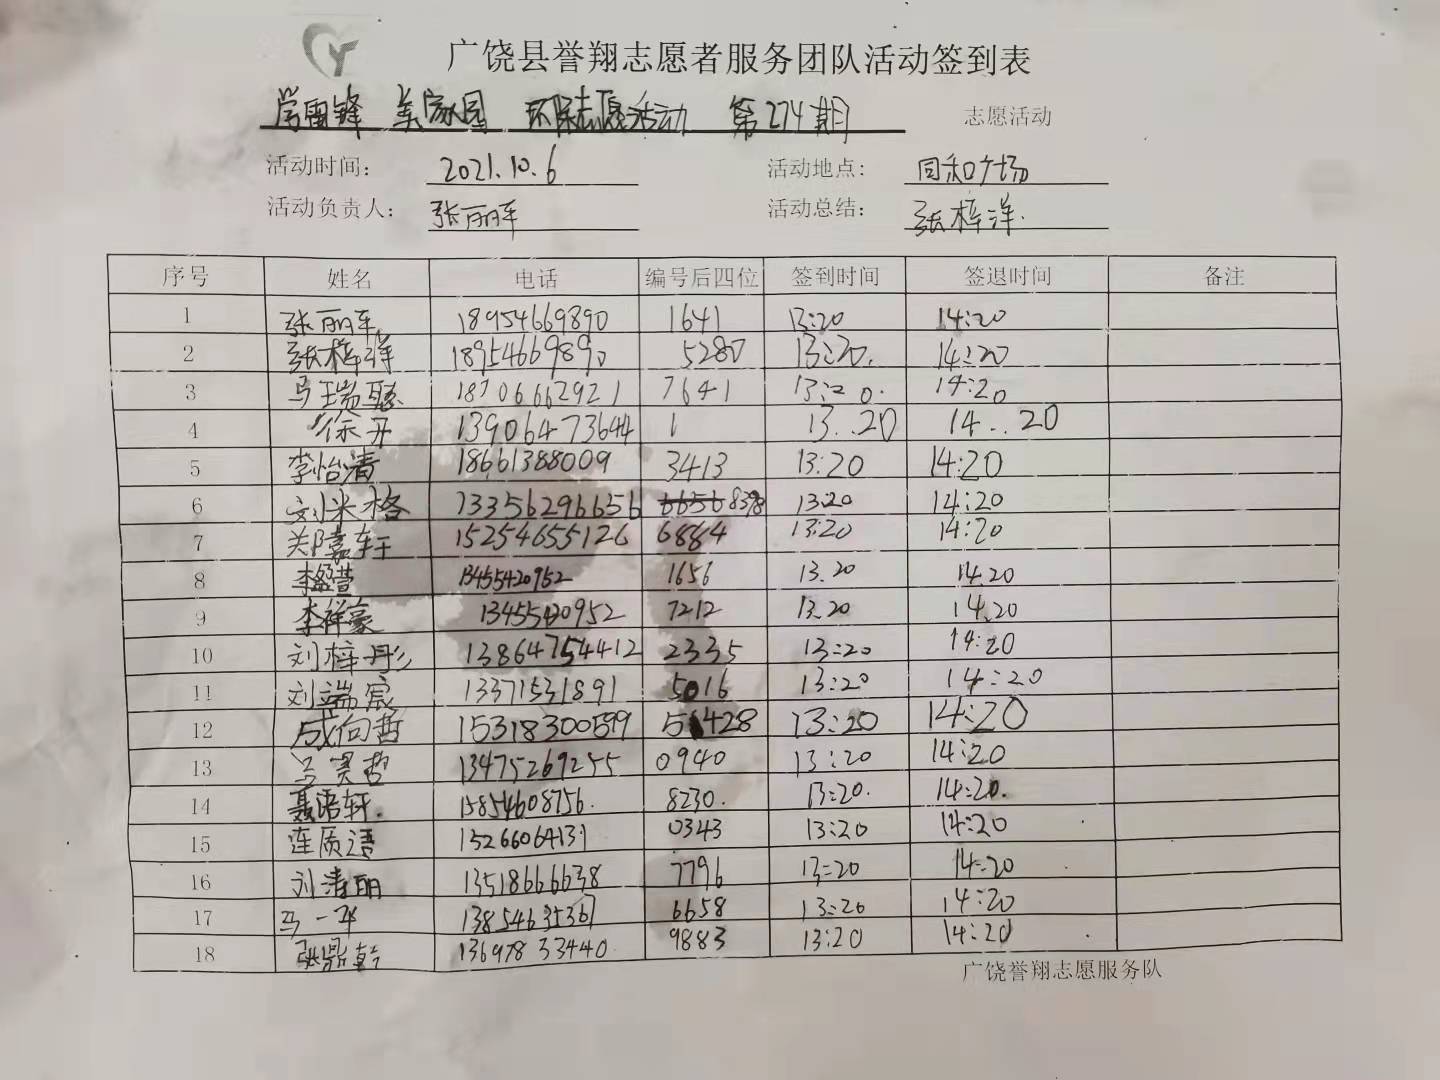 广饶县誉翔志愿者服务团队活动签到表
学雷锋 美家园 环保志愿活动 第274期 志愿活动
活动时间: 2021.10.6 活动地点: 同和广场
活动负责人: 张丽军 活动总结: 张梓洋.
序号 姓名 电话 编号后四位 签到时间 签退时间 备注
1 张丽军 18954669890 1641 13:20 14:20
2 张梓洋 18954669890 5280 13:20. 14:20
3 马瑞聪 18706662921 7641 13:20. 14:20
4 徐开 13906473644 1 13..20 14..20
5 李怡清 18661388009 3413 13:20 14:20
6 刘米格 13356296656 8398 13:20 14:20
7 郑嘉轩 15254655126 6884 13:20 14:20
8 李盈萱 13455420952 1656 13.20 14.20
9 李祥豪 7212 13.20 14.20
10 刘梓彤 13864754412 2335 13:20 14:20
11 刘端宸 13371531891 5016 13:20 14:20
12 成向哲 5428 13:20 14:20
13 13475269255 0940 13:20 14:20
14 聂语轩. 15854608756. 8230. 13:20. 14:20.
15 连质语 15266064131 0343 13:20 14:20
16 刘清丽 13518666638 7796 13:20 14:20
17 马一平 13854635367 6658 13:20 14:20
18 张鼎乾 13697833440 9883 13:20 14:20
广饶誉翔志愿服务队